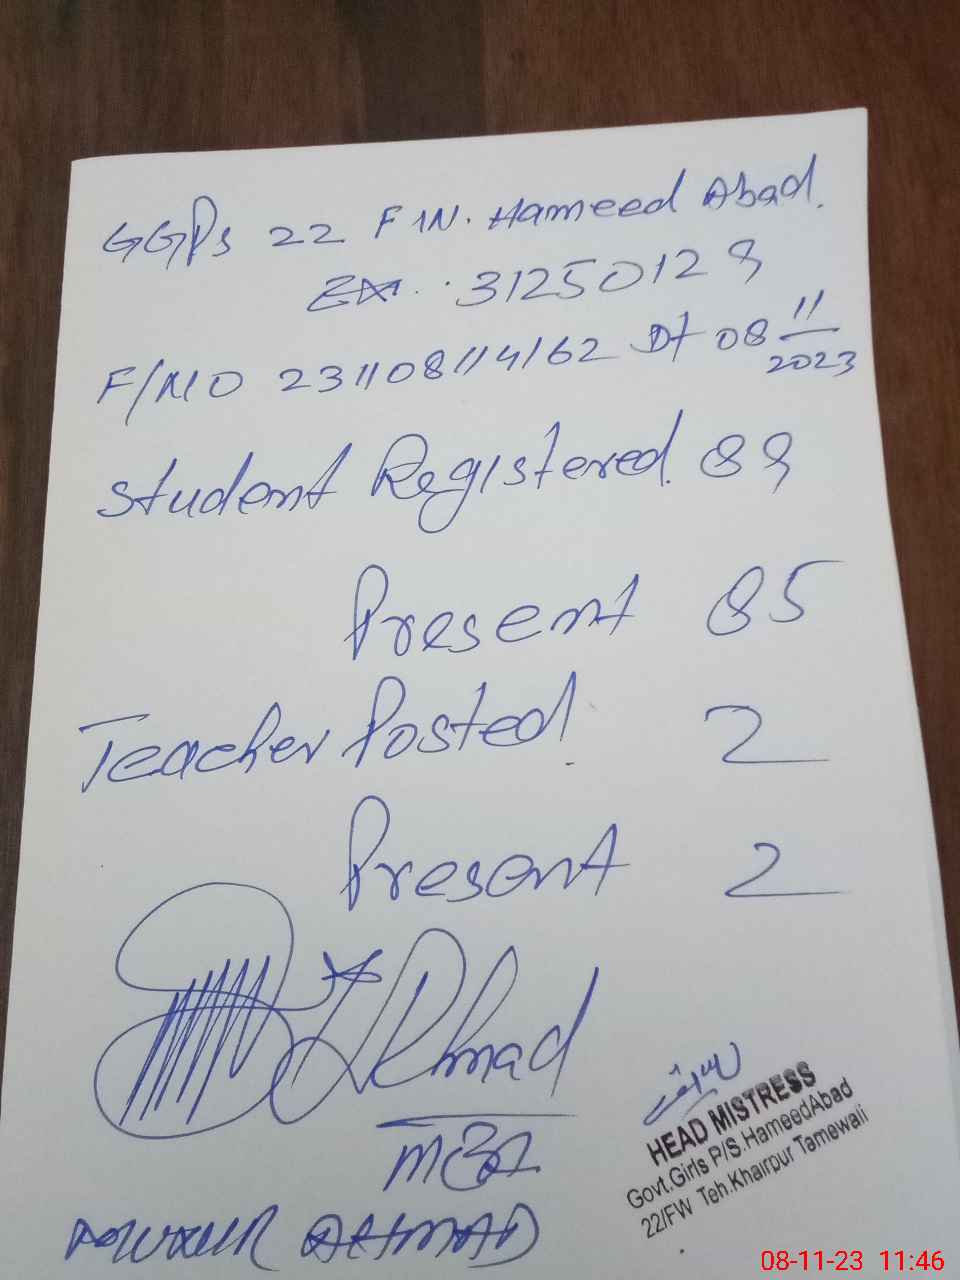 GGPs 22 F/W. Hameed Abad.
31250129
F/NO 231108114162 Dt 08 11/2023
Student Registered. 89
Present 85
Teacher Posted 2
Present 2
Ahmad
AHMAD
HEAD MISTRESS
Govt.Girls P/S.HameedAbad
22/FW Teh.Khairpur Tamewali
08-11-23 11:46